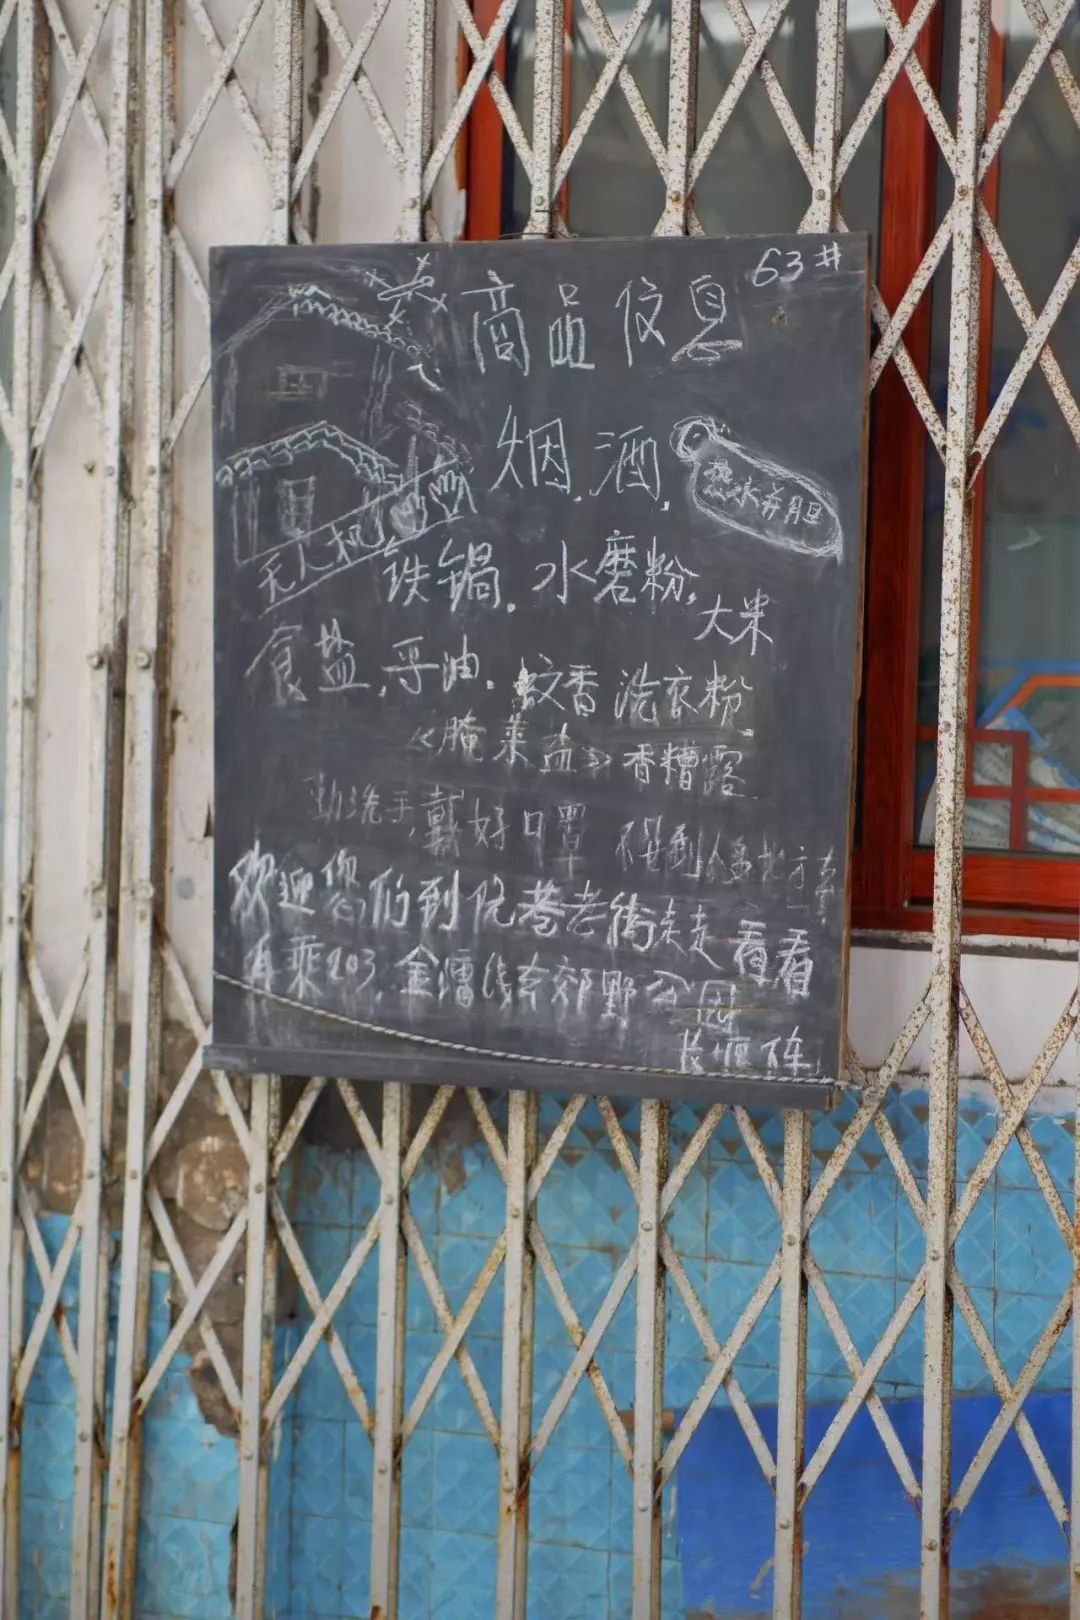 63#
商品信息
烟.酒,
热水并胆
无人机
铁锅.水磨粉,
大米
食盐,手油.蚊香洗衣粉
《腌菜盐》香糟露
勤洗手,戴好口罩
欢迎您们到 老街走走看看
再乘203,金 线去郊野公园